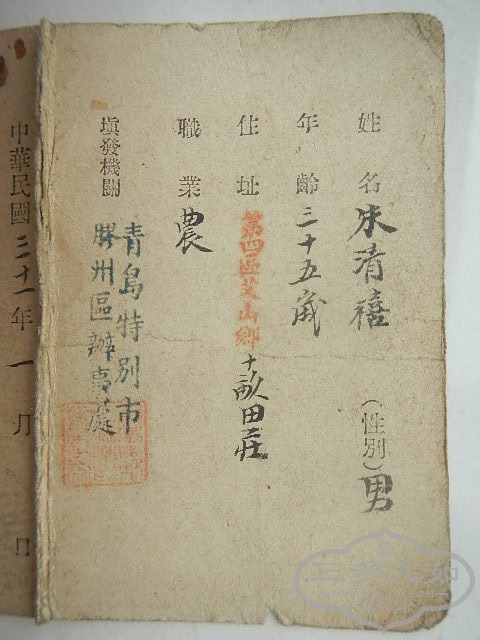 姓名 朱清禧 (性別) 男
年齡 三十五歲
住址 第四區艾山鄉 十畝田莊
職業 農
填發機關 青島特別市
膠州區辦事處
中華民國三十一年一月 日